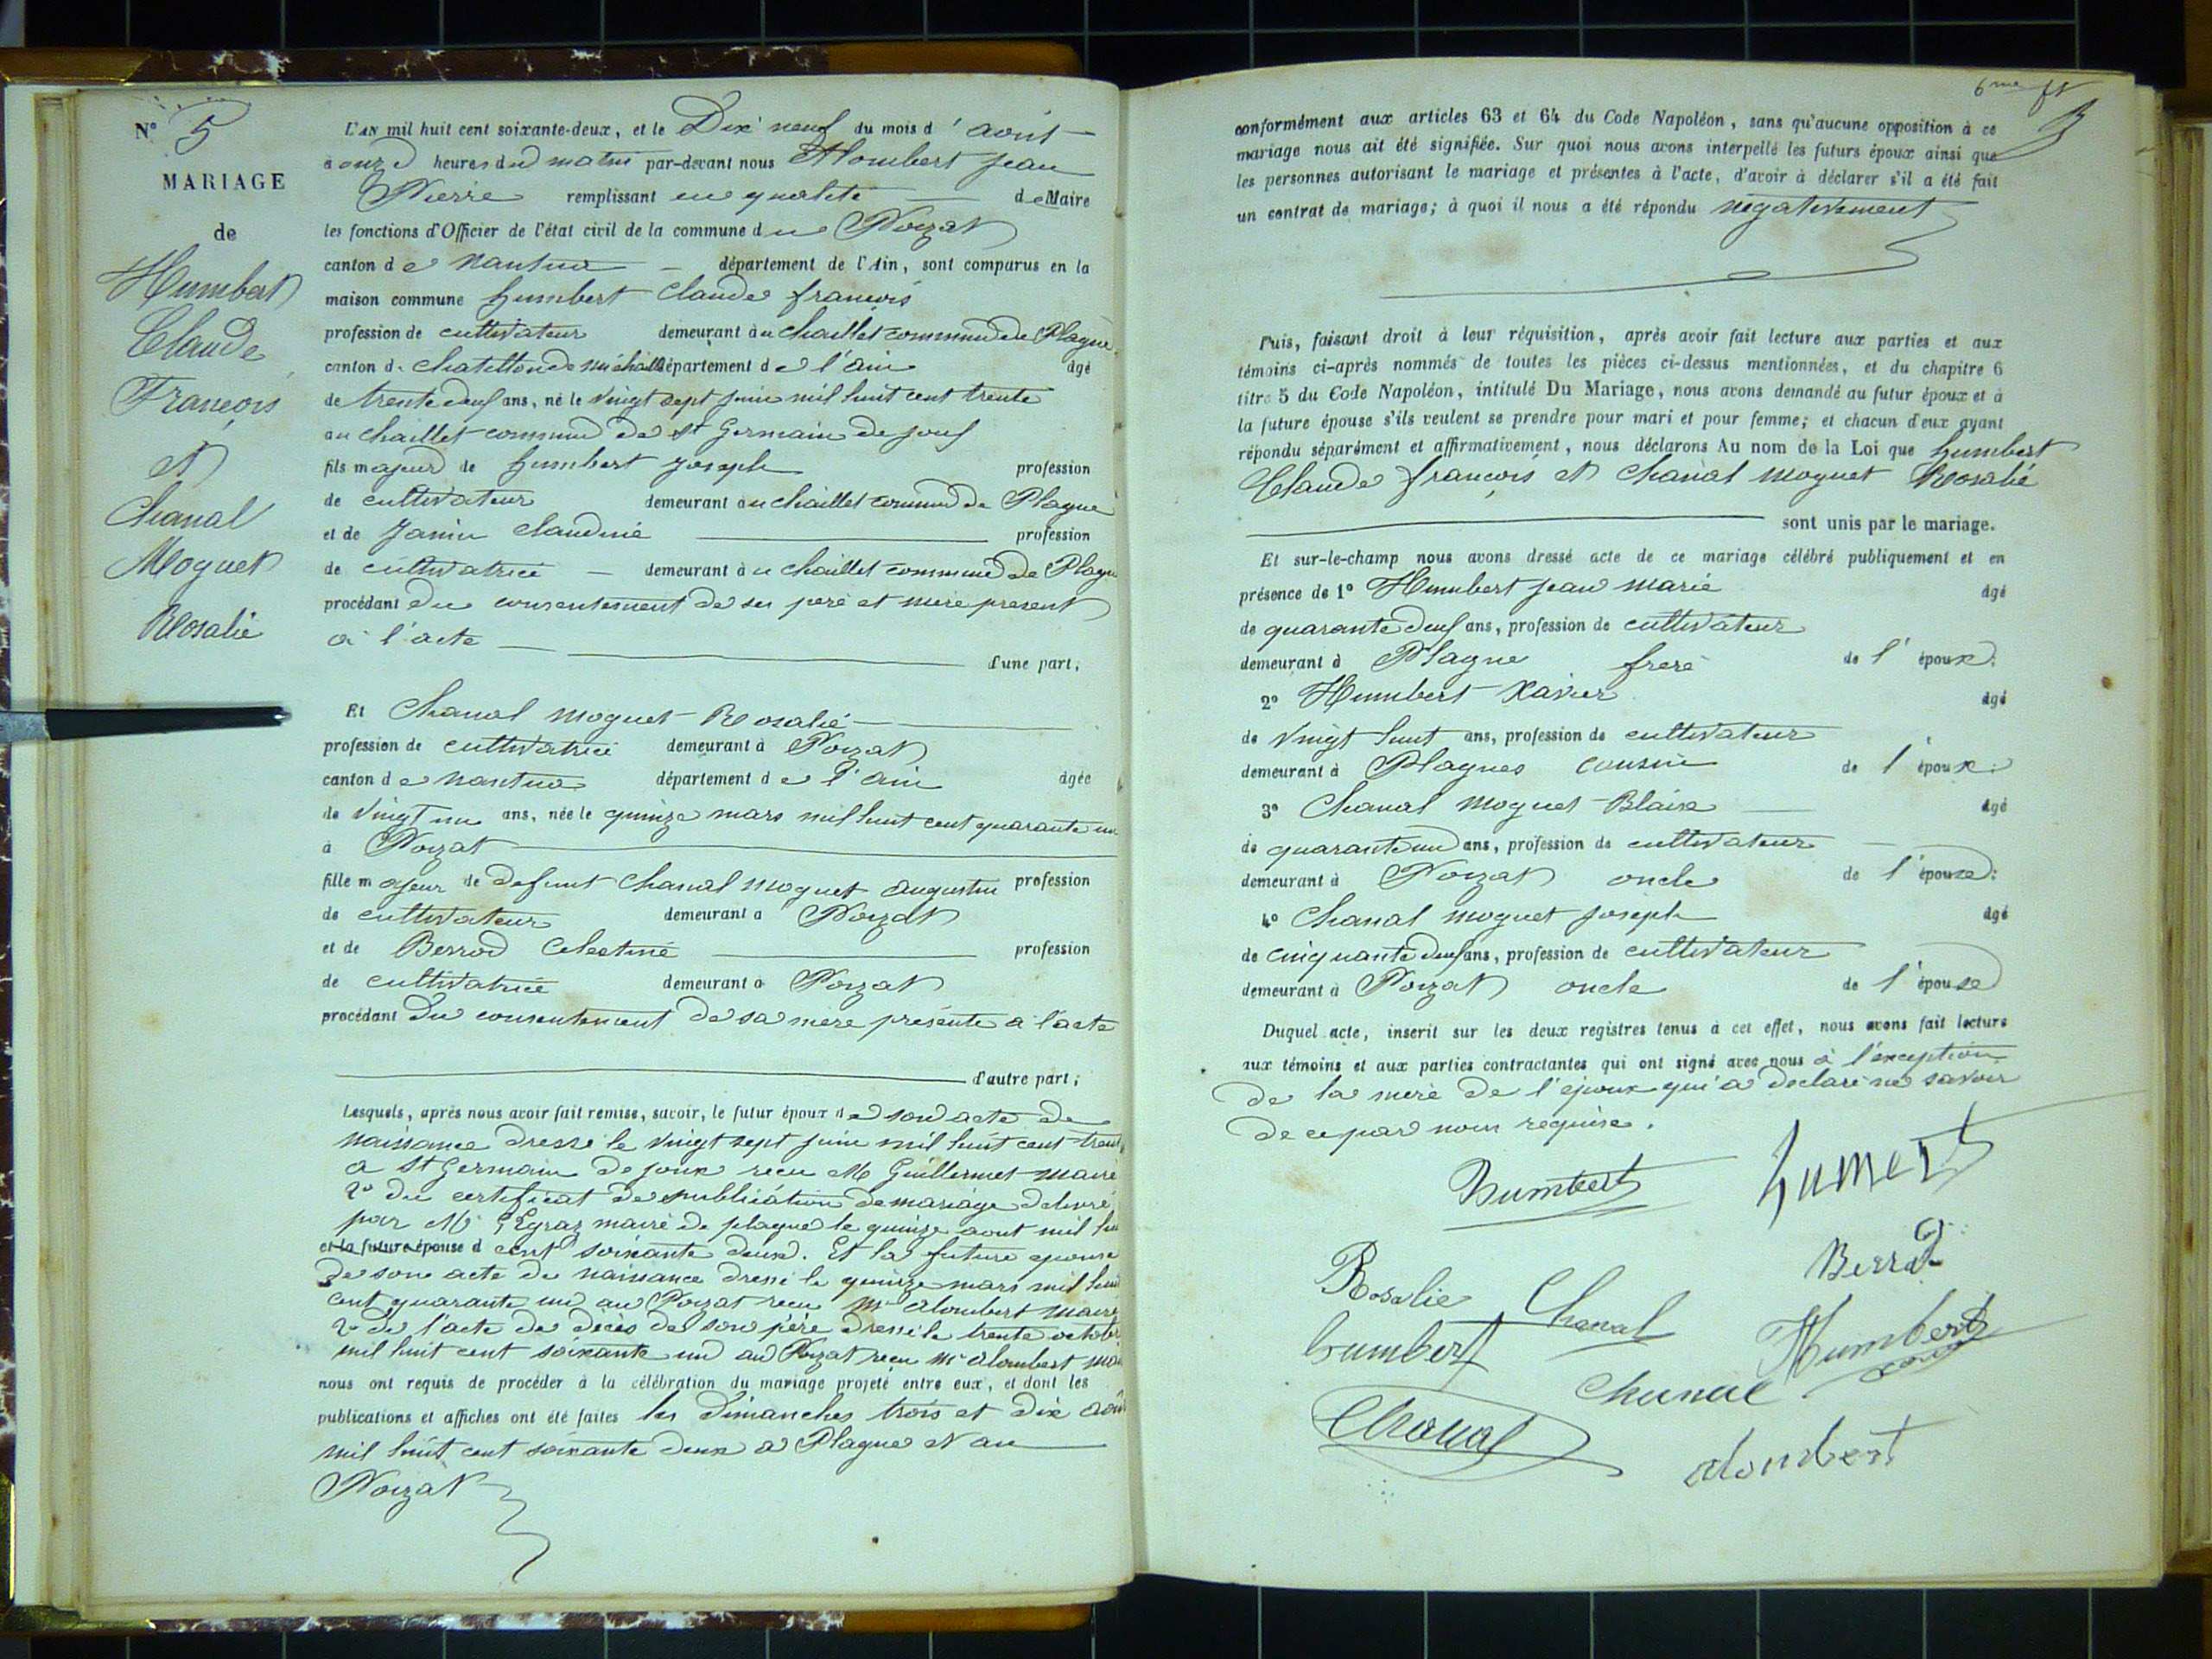 N° 5
MARIAGE
de
Humbert
Claude
François
et
Chanal
Moguet
Rosalie
L'AN mil huit cent soixante-deux, et le Dix neuf du mois d'août
à onze heures du matin par-devant nous Alombert Jean
Pierre remplissant en qualité de Maire
les fonctions d'Officier de l'état civil de la commune du Poizat
canton de Nantua département de l'Ain, sont comparus en la
maison commune humbert Claude françois
profession de cultivateur demeurant au Chaillet commune de Plagne
canton de Chatillon de michaille département de l'ain âgé
de trente deux ans, né le vingt sept juin mil huit cent trente
au Chaillet commune de St Germain de joux
fils majeur de humbert Joseph profession
de cultivateur demeurant au Chaillet commune de Plagne
et de Janin Claudine profession
de cultivatrice demeurant au Chaillet commune de Plagne
procédant du consentement de ses père et mère présent
à l'acte
d'une part,
Et Chanal moguet Rosalie
profession de cultivatrice demeurant à Poizat
canton de nantua département de l'ain âgée
de vingt un ans, née le quinze mars mil huit cent quarante un
à Poizat
fille majeur de defunt Chanal moguet augustin profession
de cultivateur demeurant à Poizat
et de Berrod Celestine profession
de cultivatrice demeurant à Poizat
procédant du consentement de sa mère présente à l'acte
d'autre part;
Lesquels, après nous avoir fait remise, savoir, le futur époux de son acte de
naissance dressé le vingt sept juin mil huit cent trente
a St Germain de joux recu M Guillermet maire
2° du certificat de publication de mariage delivré
par M GEgraz maire de plagne le quinze aout mil hui
et la future épouse d cent soixante deux. Et la future epouse
de son acte de naissance dressé le quinze mars mil huit
cent quarante un au Poizat recu Mr alombert maire
2° de l'acte de décès de son père dressé le trente octobre
mil huit cent soixante un au Poizat recu Mr alombert mai
nous ont requis de procéder à la célébration du mariage projeté entre eux, et dont les
publications et affiches ont été faites les dimanches trois et dix août
mil huit cent soixante deux a Plagne et au
Poizat
6me
conformément aux articles 63 et 64 du Code Napoléon, sans qu'aucune opposition à ce
mariage nous ait été signifiée. Sur quoi nous avons interpellé les futurs époux ainsi que
les personnes autorisant le mariage et présentes à l'acte, d'avoir à déclarer s'il a été fait
un contrat de mariage; à quoi il nous a été répondu négativement
Puis, faisant droit à leur réquisition, après avoir fait lecture aux parties et aux
témoins ci-après nommés de toutes les pièces ci-dessus mentionnées, et du chapitre 6
titre 5 du Code Napoléon, intitulé Du Mariage, nous avons demandé au futur époux et à
la future épouse s'ils veulent se prendre pour mari et pour femme; et chacun d'eux ayant
répondu séparément et affirmativement, nous déclarons Au nom de la Loi que humbert
Claude françois et Chanal moguet Rosalie
sont unis par le mariage.
Et sur-le-champ nous avons dressé acte de ce mariage célébré publiquement et en
présence de 1° Humbert Jean marie âgé
de quarante deux ans, profession de cultivateur
demeurant à Plagne frere de l'époux;
2° Humbert Xavier âgé
de vingt huit ans, profession de cultivateur
demeurant à Plagnes cousin de l'époux;
3° Chanal moguet Blaise âgé
de quarante un ans, profession de cultivateur
demeurant à Poizat oncle de l'épouse;
4° Chanal moguet Joseph âgé
de cinquante deux ans, profession de cultivateur
demeurant à Poizat oncle de l'épouse
Duquel acte, inscrit sur les deux registres tenus à cet effet, nous avons fait lecture
aux témoins et aux parties contractantes qui ont signé avec nous à l'exception
de la mere de l'époux qui a declaré ne savoir
de ce par nous requise.
Humbert humert
Rosalie Chanal Berrod
humbert Humbert
Chanal
Chanal
alombert